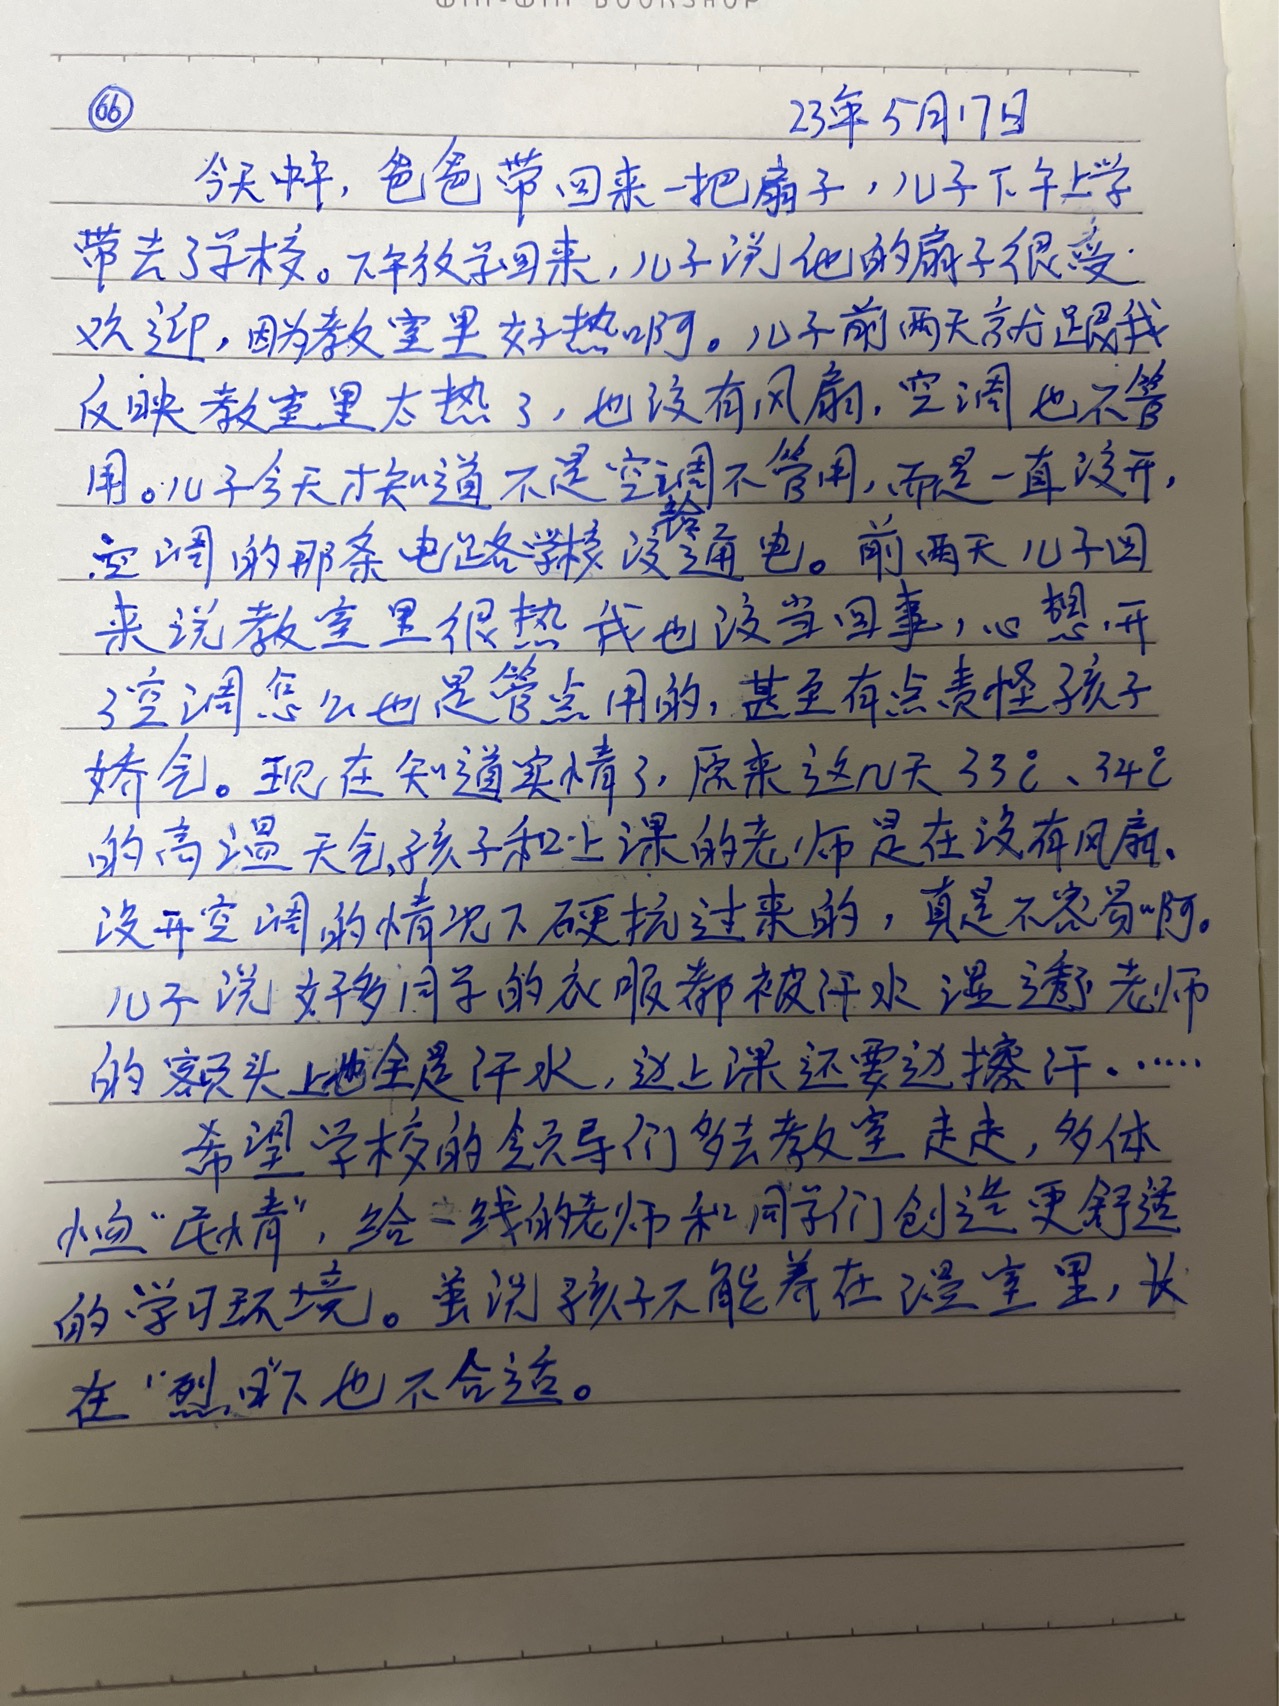 WIN-WIN BOOKSHOP
66
23年5月17日
今天中午,爸爸带回来一把扇子,儿子下午上学
带去了学校。下午放学回来,儿子说他的扇子很受
欢迎,因为教室里好热啊。儿子前两天就跟我
反映教室里太热了,也没有风扇,空调也不管
用。儿子今天才知道不是空调不管用,而是一直没开,
空调的那条电路学校没给通电。前两天儿子回
来说教室里很热我也没当回事,心想开
了空调怎么也是管点用的,甚至有点责怪孩子
娇气。现在知道实情了,原来这几天33℃、34℃
的高温天气,孩子和上课的老师是在没有风扇、
没开空调的情况下硬抗过来的,真是不容易啊。
儿子说好多同学的衣服都被汗水湿透,老师
的额头上也全是汗水,边上课还要边擦汗……
希望学校的领导们多去教室走走,多体
恤“民情”,给一线的老师和同学们创造更舒适
的学习环境。虽说孩子不能养在温室里,长
在“烈日”下也不合适。